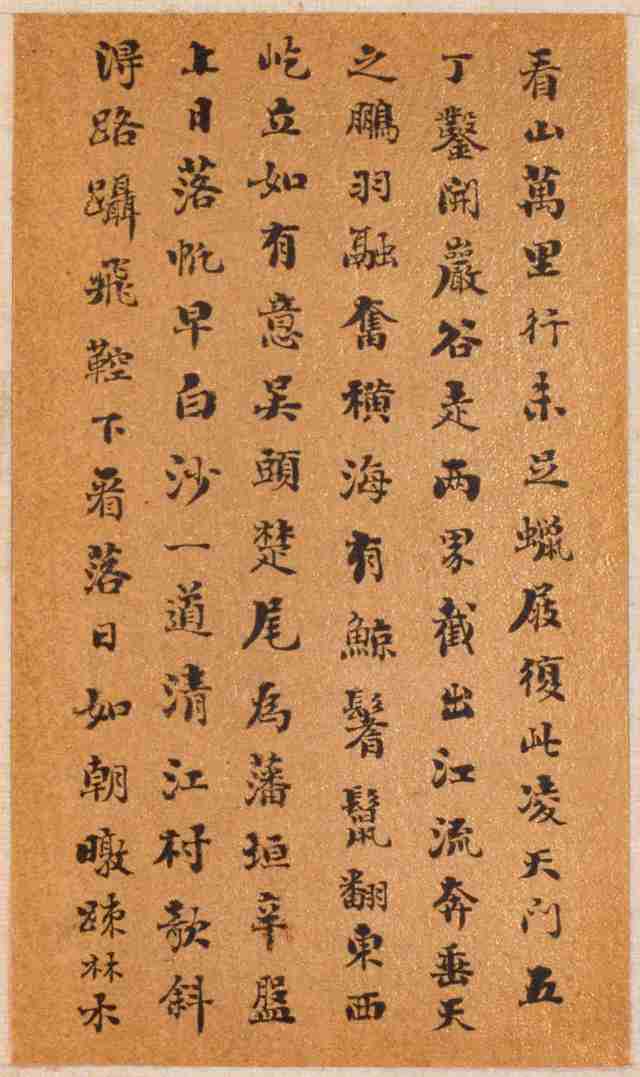 看山萬里行未足蠟屐復此凌天門五
丁鑿開巖谷走兩界截出江流奔垂天
之鵬羽翮奮橫海有鯨鬐鬣翻東西
屹立如有意吳頭楚尾為藩垣辛盤
上日落帆早白沙一道清江村欹斜
得路躡飛鞚下看落日如朝暾疎林木